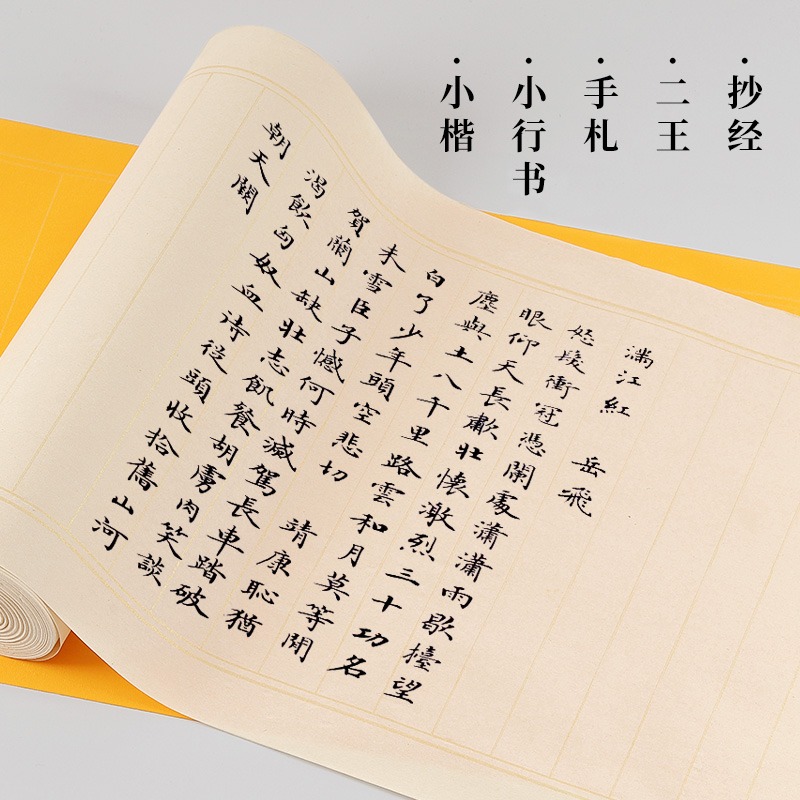 ·抄经
·二王
·手札
·小行书
·小楷
滿江紅 岳飛
怒髮衝冠憑闌處瀟瀟雨歇擡望
眼仰天長歗壯懷激烈三十功名
塵與土八千里路雲和月莫等閒
白了少年頭空悲切 靖康恥猶
未雪臣子憾何時滅駕長車踏破
賀蘭山缺壯志飢餐胡虜肉笑談
渴飲匈奴血待從頭收拾舊山河
朝天闕